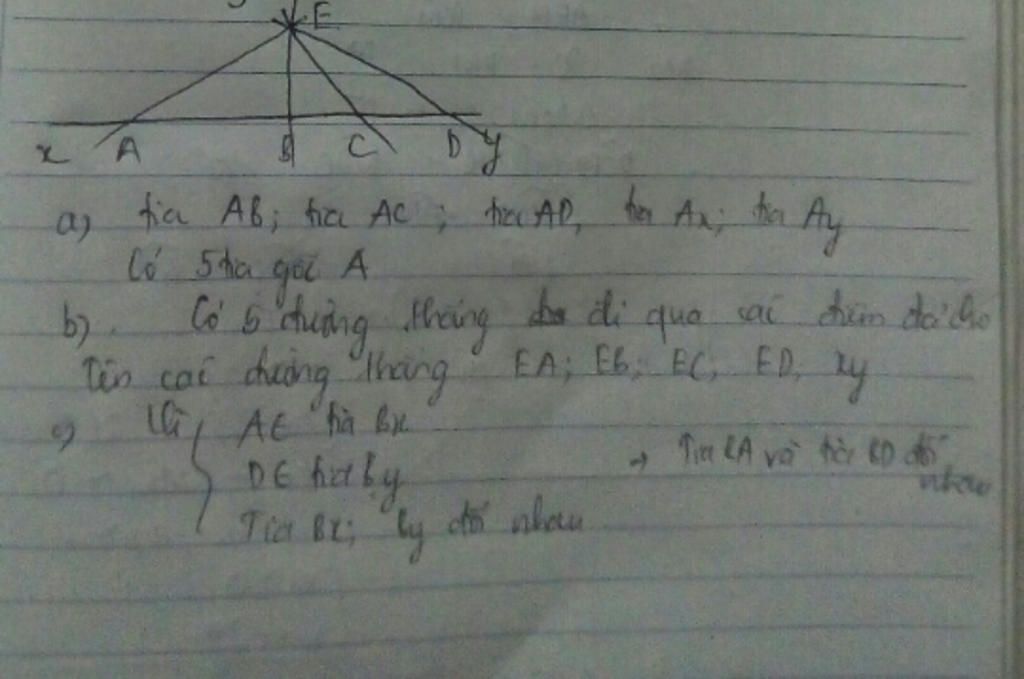 E
x A B C D y
a) tia AB; tia AC; tia AD, tia Ax; tia Ay
Có 5 tia gốc A
b). Có 5 đường thẳng đi qua các điểm đã cho
Tên các đường thẳng EA; EB; EC; ED; xy
c) Vì { A∈ tia Bx
D∈ tia By → Tia BA và tia BD đối nhau
Tia Bx; By đối nhau